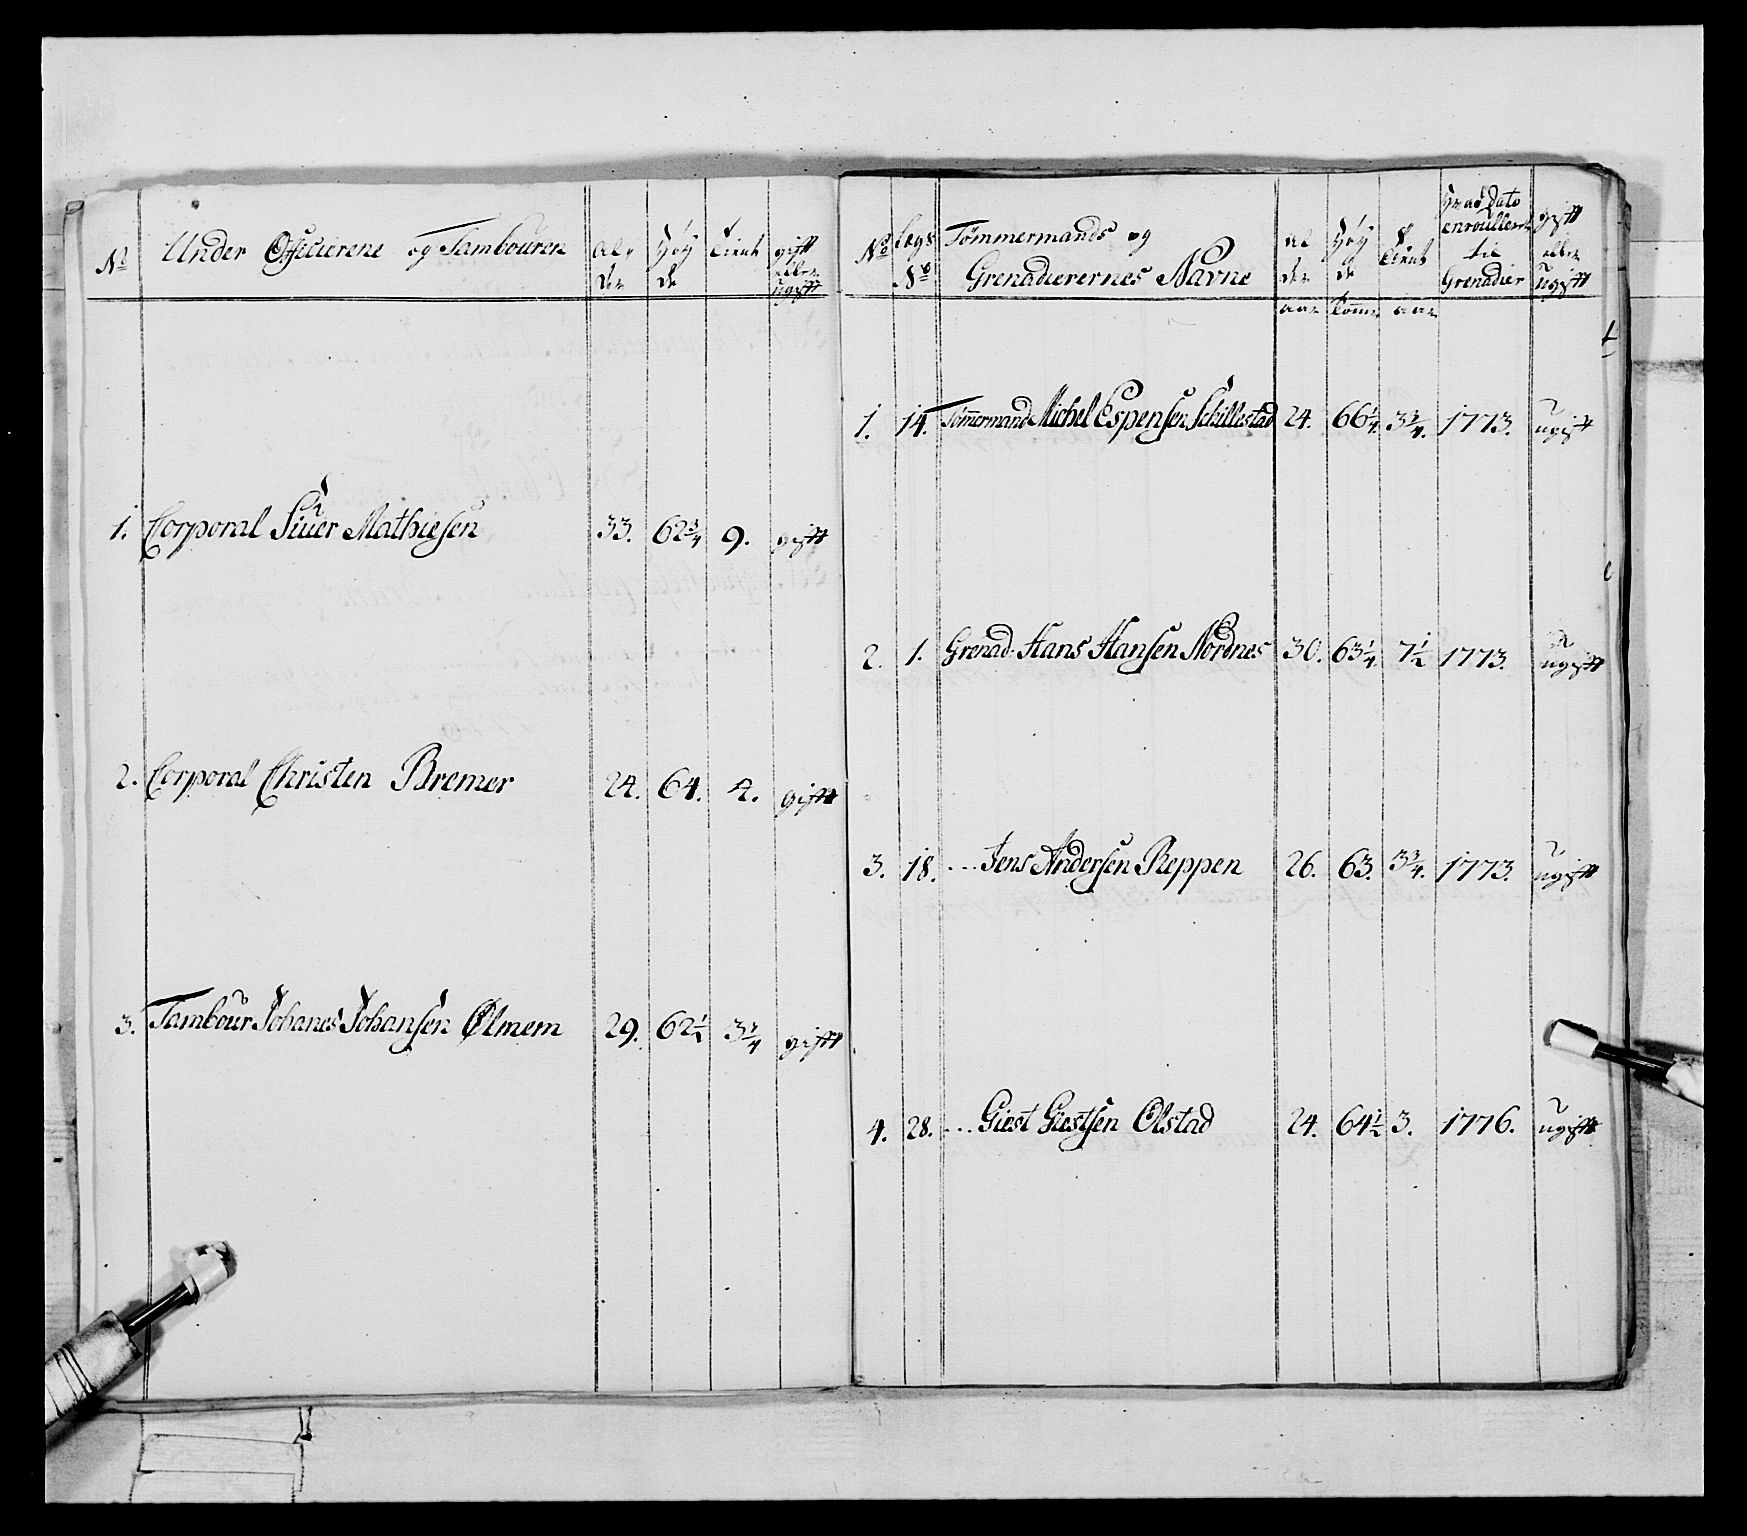 No Under Officierene og Tambouren Al- der Høy de Tient gift eller ugift
1. Corporal Siuer Mathiesen 33. 62 3/4 9. gift
2. Corporal Christen Bremer 24. 64. 4. gift
3. Tambour Johanes Johansen Ølmem 29. 62 1/2 3 3/4 gift
No Lægs No Tømmermands og Grenadierernes Navne Al der Høy de Tient Hvad Dato enroulleret til Grenadier gift eller ugift
aar Tomm aar
1. 14. Tømmermand Michel Espensen Schillestad 24. 66 1/4. 3 3/4. 1773. ugift
2. 1. Grenad: Hans Hansen Nordnes 30. 63 1/4 7 1/2 1773. ugift
3. 18. ... Jens Andersen Reppen 26. 63. 3 3/4. 1773. ugift
4. 28. ... Giest Giestsen Olstad 24. 64 1/2 3. 1776. ugift